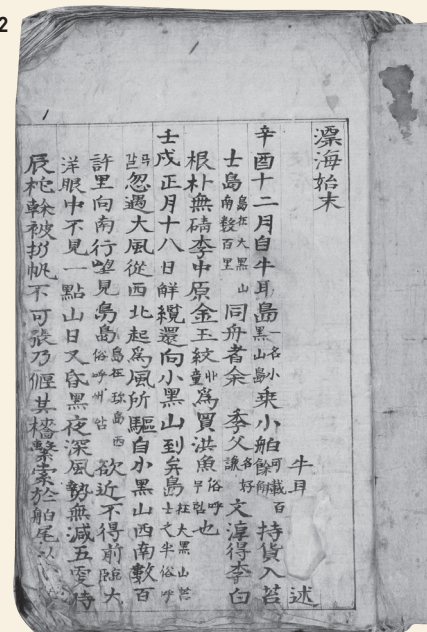 漂海始末
牛耳 述
辛酉十二月自牛耳島一名小黑山島乘小舶可載百餘斛持貨入苔
士島島在大黑山南數百里同舟者余季父名好謙文淳得李白
根朴無碃李中原金玉紋丱童爲買洪魚俗呼也
壬戌正月十八日解纜還向小黑山到弁島在大黑山苔士之半俗呼
忽遇大風從西北起爲風所驅自小黑山西南數百
許里向南行望見鳥島島在珍島西俗呼欲近不得前臨大
洋眼中不見一點山日又昏黑夜深風勢無減五更時
辰柁榦被折帆不可張乃偃其檣繫索於舶尾以
2